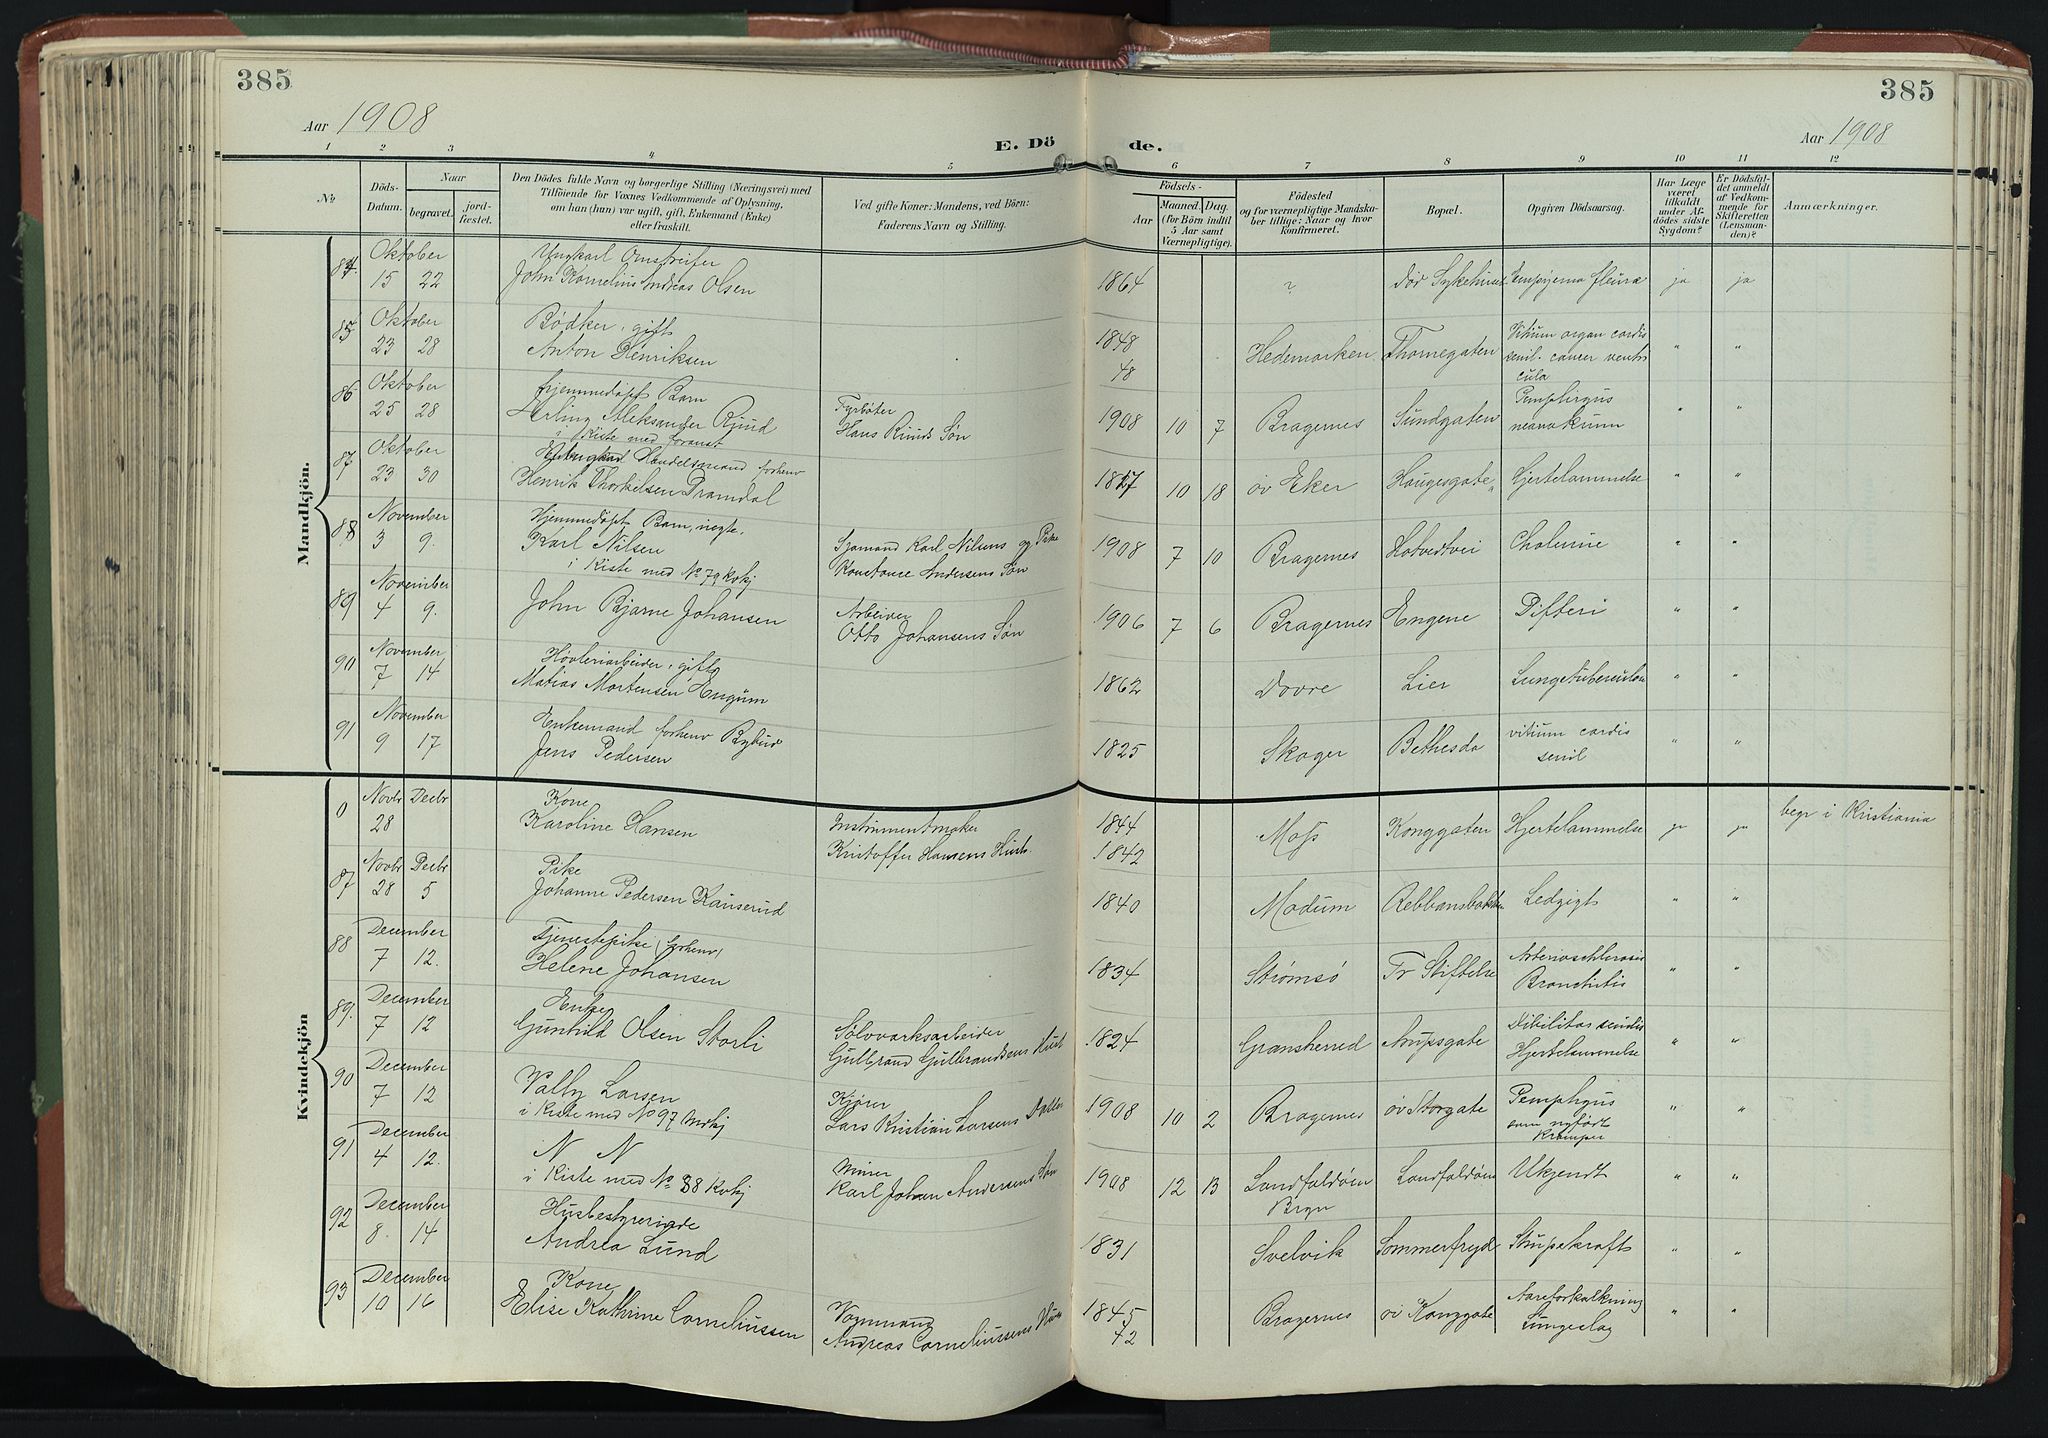 385
385
Aar 1908
E. Döde.
Aar 1908
1 2 3 4 5 6 7 8 9 10 11 12
No
Döds-Datum.
Naar
begravet.
jordfæstet.
Den Dödes fulde Navn og borgerlige Stilling (Næringsvei) med
Tilföiende for Voxnes Vedkommende af Oplysning,
om han (hun) var ugift, gift, Enkemand (Enke)
eller fraskilt.
Ved gifte Koner: Mandens, ved Börn:
Faderens Navn og Stilling.
Födsels-
Aar
Maaned. Dag.
(for Börn indtil
5 Aar samt
Værnepligtige).
Födested
og for værnepligtige Mandskaber tillige: Naar og hvor
konfirmeret.
Bopæl.
Opgiven Dödsaarsag.
Har Læge
været
tilkaldt
under Afdödes sidste
Sygdom?
Er Dödsfaldet anmeldt
af Vedkommende for
Skifteretten
(Lensmanden)?
Anmærkninger.
Mandkjön.
84. Oktober 15 22 Ungkarl Omstreifer
John Kornelius Andreas Olsen 1864 ? dør Sykehuset Empyema pleura ja ja
85 Oktober 23 28 Bødker, gift
Anton Henriksen 1848 48 Hedemarken Thornegaten Vitium organ cordis
senil. cancer ventri
cula " "
86 Oktober 25 28 hjemmedøpt Barn
Erling Aleksander Ruud
i Kiste med foranst
Fyrbøter
Hans Ruuds Søn 1908 10 7 Bragernes Sundgaten Pemphigus
neonatorum " "
87 Oktober 23 30 Handelsmand forhenv
Henrik Thorkilsen Bramdal 1827 10 18 øv Eker Haugesgate Hjertelammelse " "
88 November 3 9. Hjemmedøpt Barn, uegte,
Karl Nilsen
i Kiste med No 79 Kvkj
Sjømand Karl Nilsens og Pike
Konstance Andersens Søn 1908 7 10 Bragernes Hotvedtvei Cholerine " "
89 November 4 9. John Bjarne Johansen
Arbeider
Otto Johansens Søn 1906 7 6 Bragernes Engene Difteri " "
90 November 7 14 Høvleriarbeider, gift
Matias Mortensen Engum 1862 Dovre Lier Lungetuberculose " "
91 November 9 17 Enkemand forhenv Bybud
Jens Pedersen 1825 Skoger Bethesda vitium cordis
senil " "
Kvindekjön
0 Novbr Decbr 28 Kone
Karoline Hansen
Instrumentmaker
Kristoffer Hansens Hustr. 1844 1842 Moss Konggaten Hjertelammelse ja ja begr i Kristiania
87 Novbr Decbr 28 5 Pike
Johanne Pedersen Kauserud 1840 Modum Rebbansbakken Ledgigt " "
88 December 7 12. Tjenestepike (forhenv)
Helene Johansen 1834 Strømsö Tr Stiftelse Arterioschlerosis
Bronchitis " "
89. December 7 12 Enke
Gunhild Olsen Storli
Sølvverksarbeider
Gulbrand Gulbrandsens Hust 1824 Gransherred Arupsgate Dibilitas senilis
Hjertelammelse " "
90 December 7 12 Valby Larsen
i Kiste med No 97 Mnkj
Kjører
Lars Kristian Larsens Datter 1908 10 2 Bragernes øv Storgate Pemphigus
som nyfödt
Kramper " "
91 December 4 12. N N
i Kiste med No 38 Kvkj
Minør
Karl Johan Andersens Søn 1908 12 13 Landfaldøen
Brgn Landfaldøen Ukjendt " "
92 December 8. 14 Husbestyrerinde
Andrea Lund 1831 Svelvik Sommerfryd Strupekræft " "
93 December 10 16 Kone
Elise Kathrine Corneliussen
Vognmand
Andreas Corneliussens Hustr 1845 42 Bragernes øv Konggate Aareforkalkning
Lungeslag " "